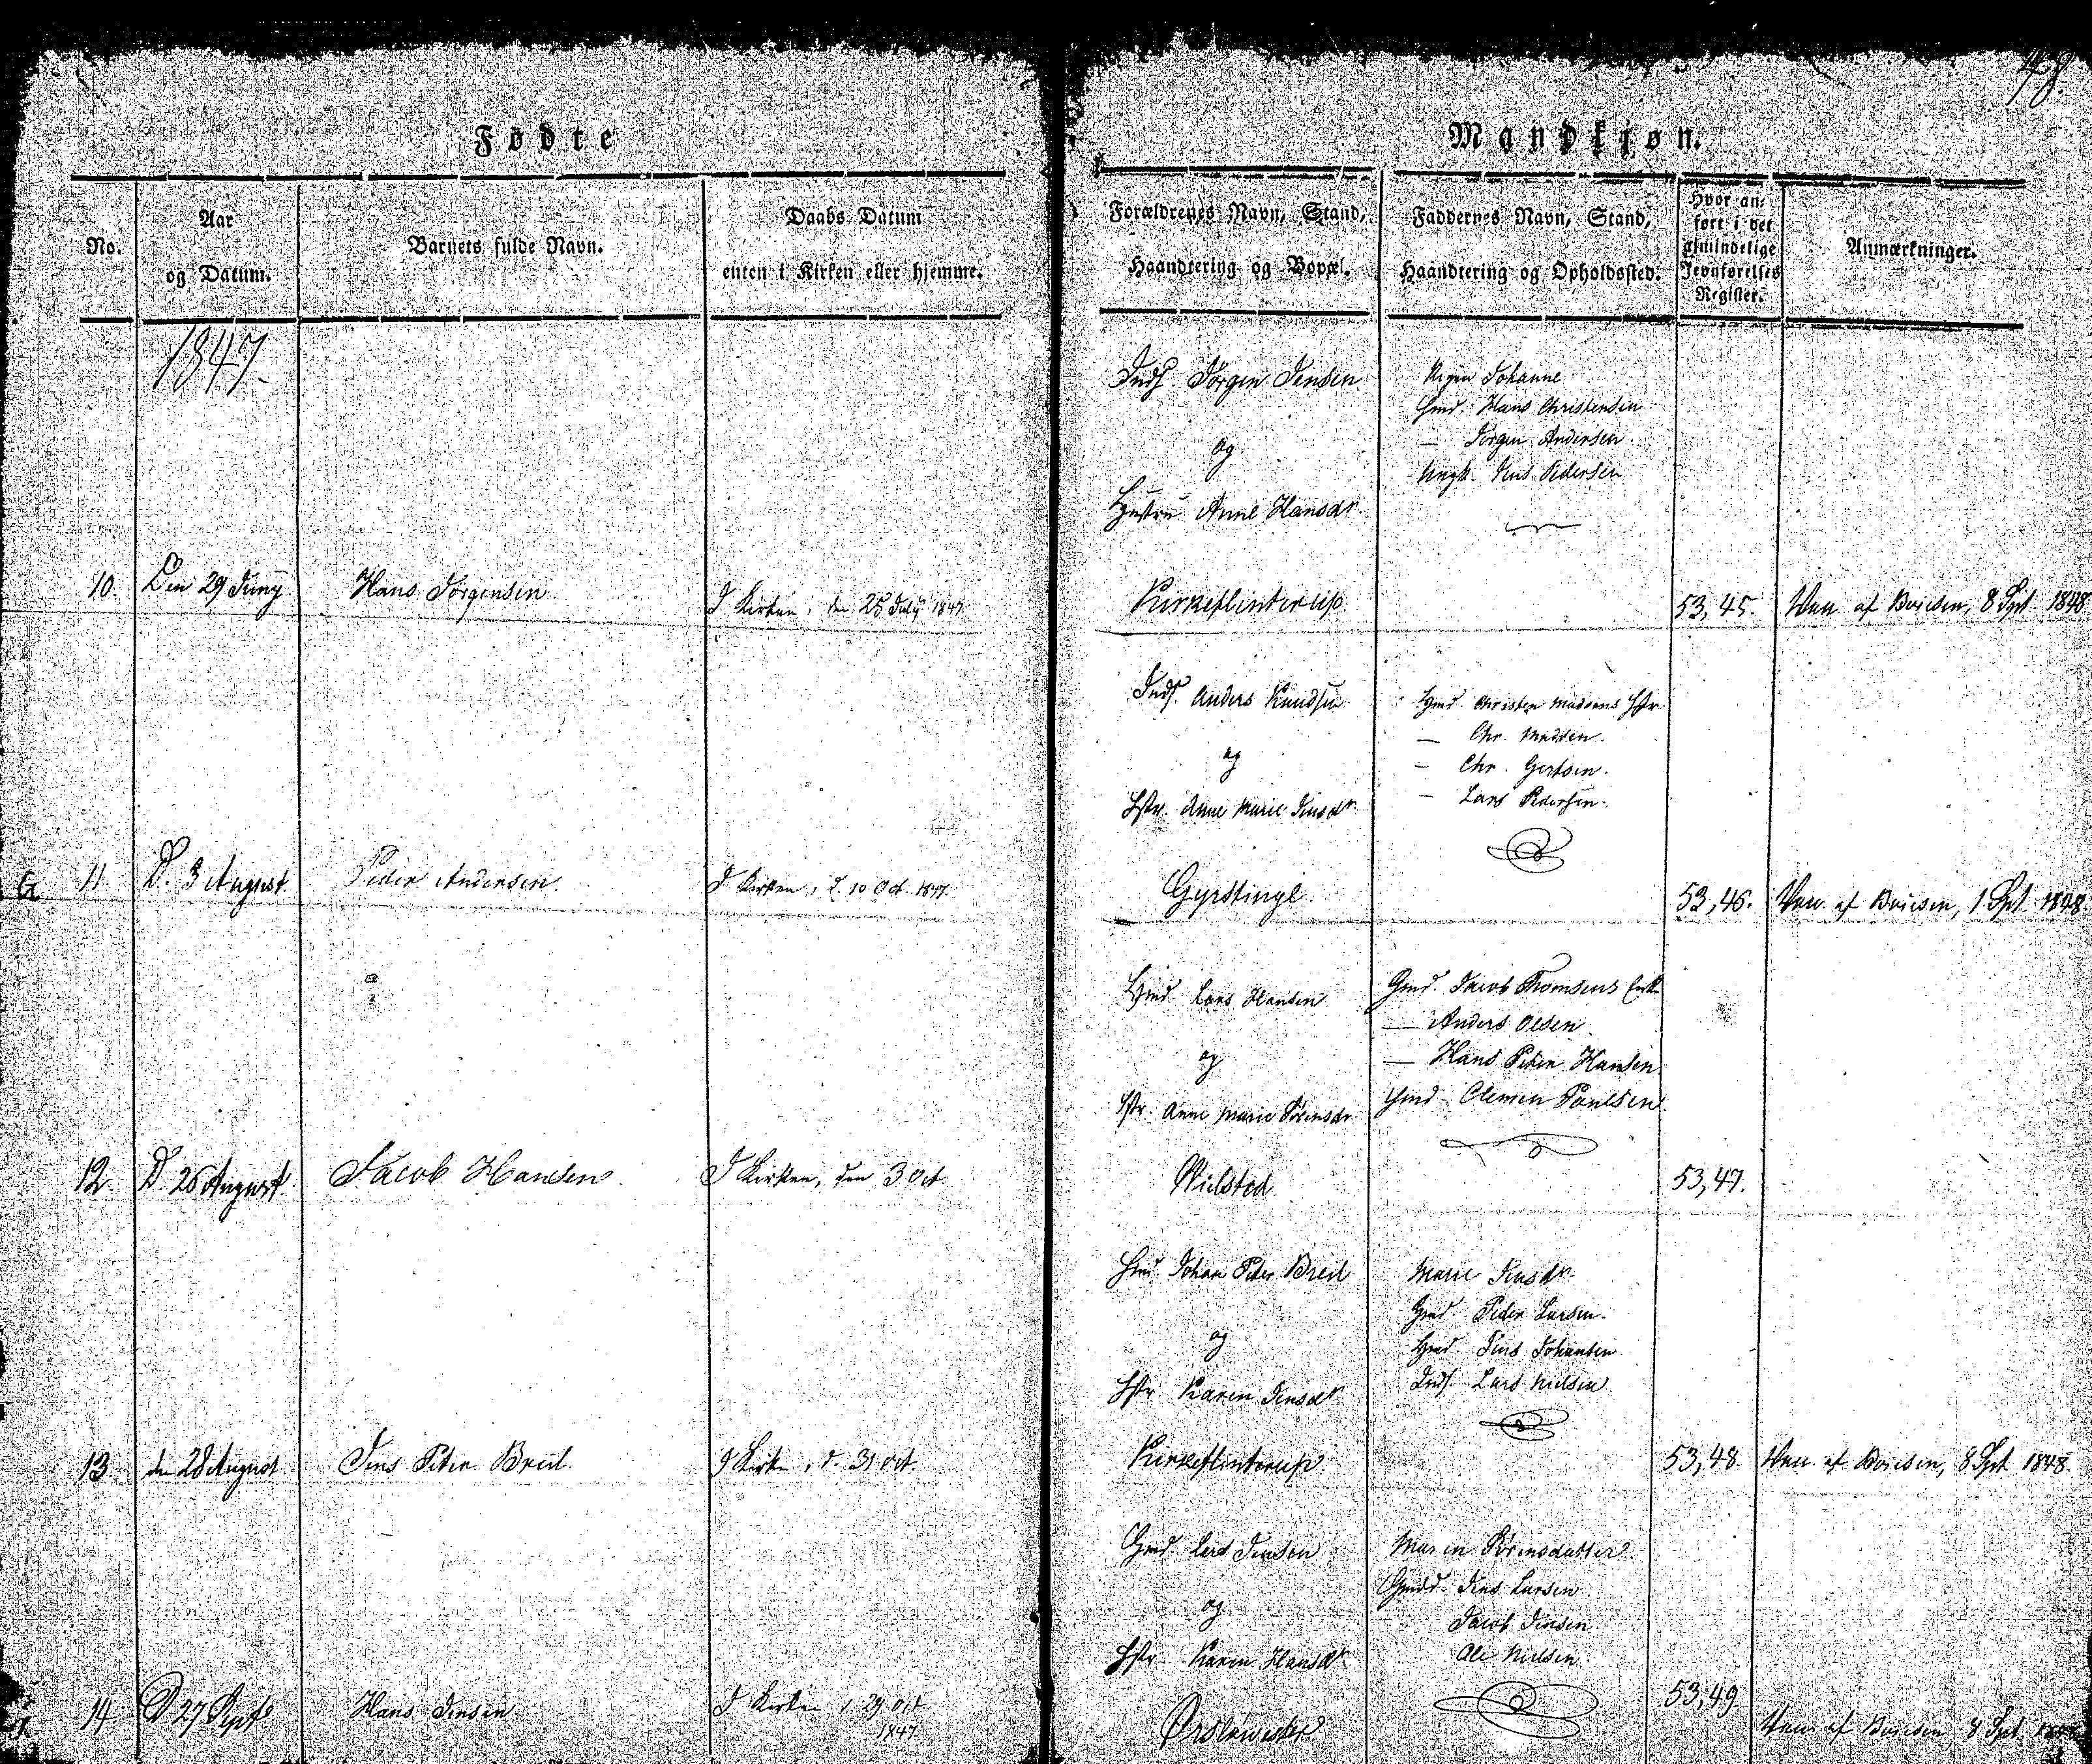 48.
Fødte
Mandkjøn.
No.
Aar
og Datum.
Barnets fulde Navn.
Daabs Datum
enten i Kirken eller hjemme.
Forældrenes Navn, Stand,
Haandtering og Bopæl.
Faddernes Navn, Stand,
Haandtering og Opholdssted.
Hvor an-
ført i det
almindelige
Jevnførelses
Register.
Anmærkninger.
1847.
Inds. Jørgen Jensen
og
Hustru Anne Hansdr.
Pigen Johanne
Hmd. Hans Christensen
— Jørgen Andersen
Ungk. Jens Pedersen
10. Den 29 Juny
Hans Jørgensen
I Kirken, den 25 July 1847
Kirkeflinterup.
53,45.
Vac. af Boiesen, 8 Spt 1848
Inds. Anders Knudsen
og
Hstr. Anne Marie Jensdr
Hmd. Christen Madsens Hstr.
— Chr. Madsen.
— Chr. Gertsen.
— Lars Pedersen.
G 11 D. 3 August.
Peder Andersen.
I Kirken, d. 10 Oct. 1847.
Gyrstinge.
53,46.
Vac. af Boiesen, 1 Spt 1848.
Hmd Lars Hansen
og
Hstr. Anne Marie Sørensdr
Gmd. Jacob Thomsens Enke
— Anders Olsen
— Hans Peder Hansen
Hmd — Clemen Poulsen
12. D 26 August
Jacob Hansen.
I Kirken, den 3 Oct.
53,47.
Hmd Johan Peter Breil
og
Hstr Karen Jensdr
Marie Jensdr
Gmd. Peder Larsen.
Hmd. Jens Johansen
Inds. Lars Nielsen
13. den 28 August
Jens Peter Breil.
I Kirken, d. 31 Oct.
Kirkeflinterup
53,48.
Vac. af Boiesen, 8 Spt 1848.
Gmd. Lars Jensen
og
Hstr. Karen Hansdr
Maren Sørensdatter
Gmdd. Jens Larsen
Jacob Jensen
Ole Nielsen.
14. D 27 Sept.
Hans Jensen
I Kirken d 29 Oct
1847
Ørslevvester
53,49.
Vac. af Boiesen, 8 Spt.